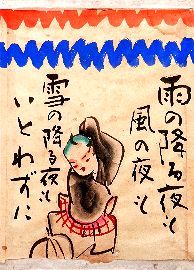 雨の降る夜も
風の夜も
雪の降る夜も
いとわずに